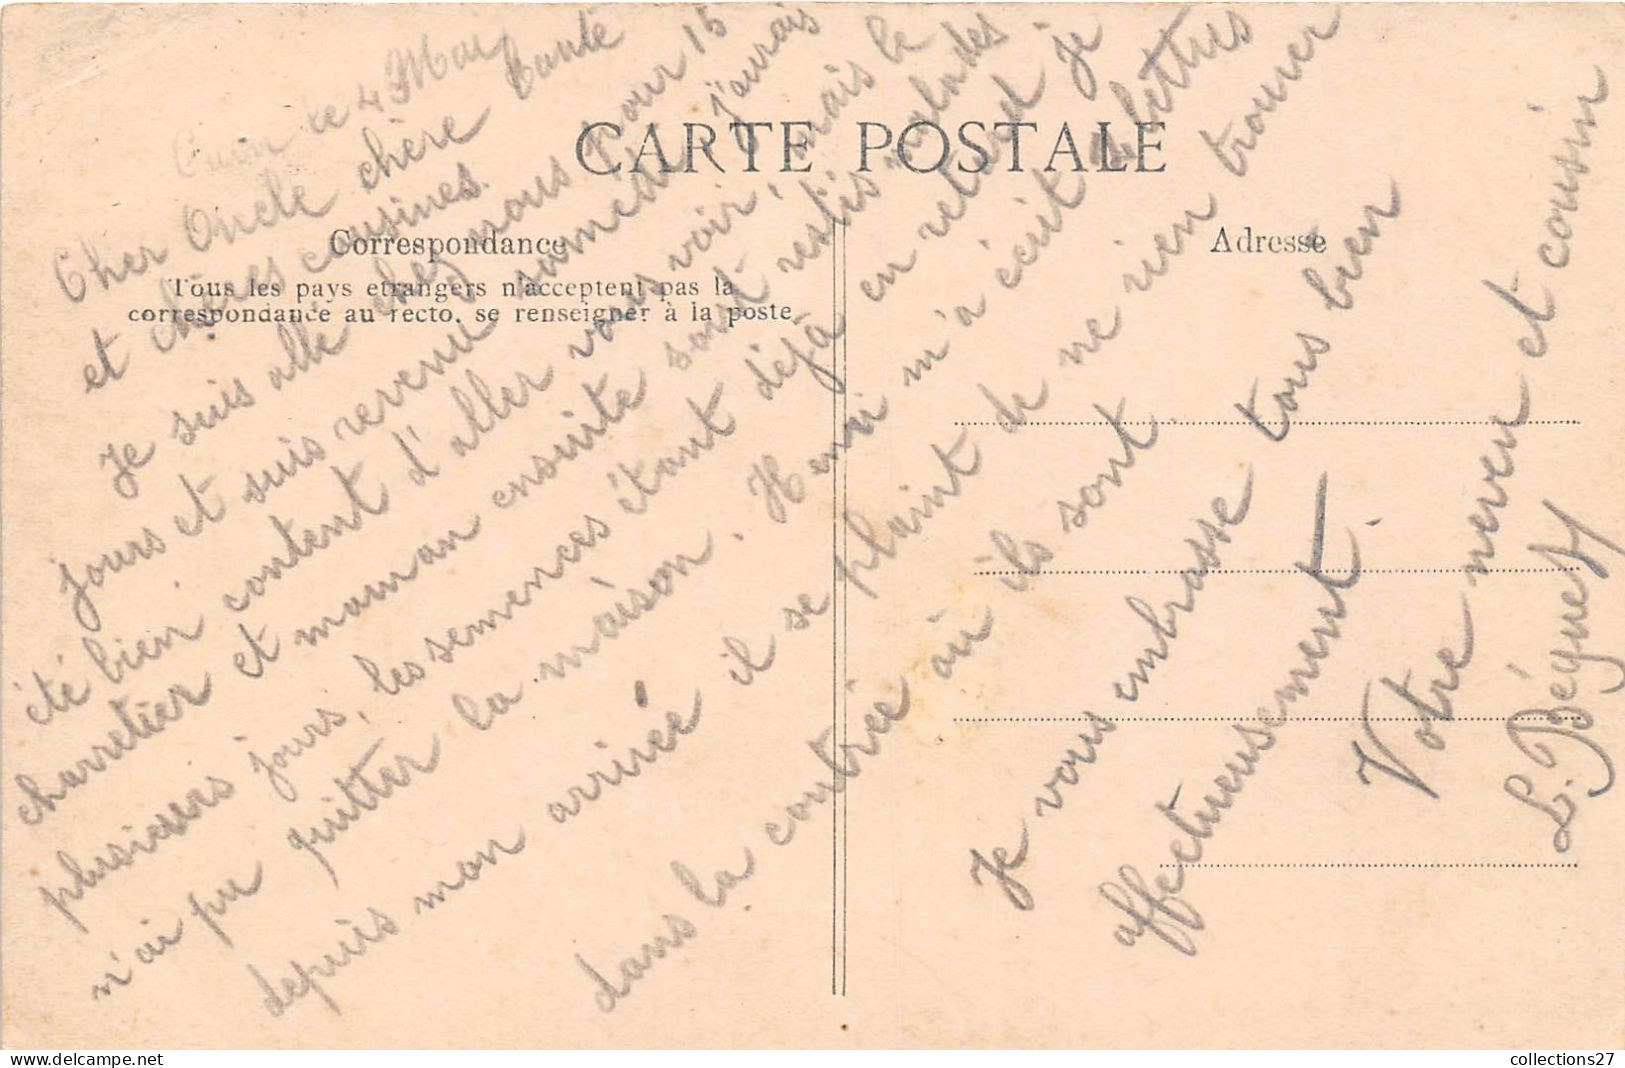 CARTE POSTALE
Correspondance
Tous les pays etrangers n'acceptent pas la
correspondance au recto, se renseigner à la poste
Adresse
le 4 Mai
Cher Oncle chère tante
et chères cousines.
Je suis allé chez nous pour 15
jours et suis revenu samedi, j'aurais
été bien content d'aller vous voir, mais le
charretier et maman ensuite sont restés malades
plusieurs jours, les semences étant déjà en retard je
n'ai pu quitter la maison. Henri m'a écrit 2 lettres
depuis mon arrivée il se plaint de ne rien trouver
dans la contrée où ils sont.
Je vous embrasse tous bien
affectueusement.
Votre neveu et cousin
L. Béguet
collections27